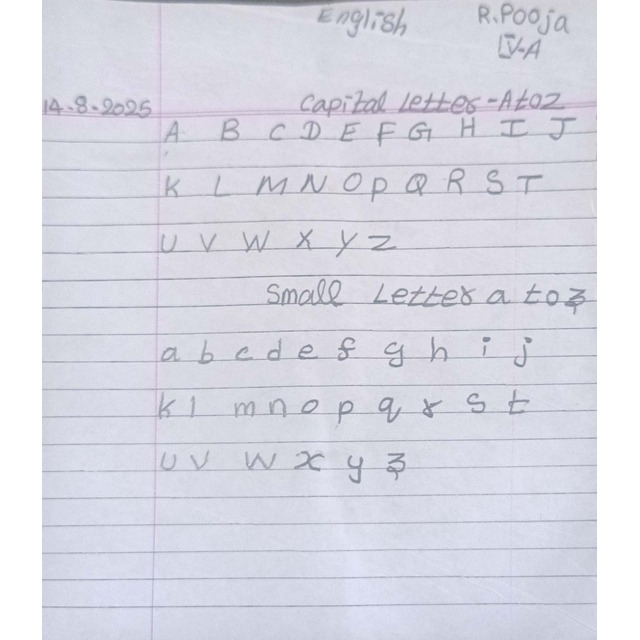 English R.Pooja
IV-A
14.8.2025 Capital Letter - A to Z
A B C D E F G H I J
K L M N O P Q R S T
U V W X Y Z
Small Letter a to z
a b c d e f g h i j
k l m n o p q r s t
u v w x y z